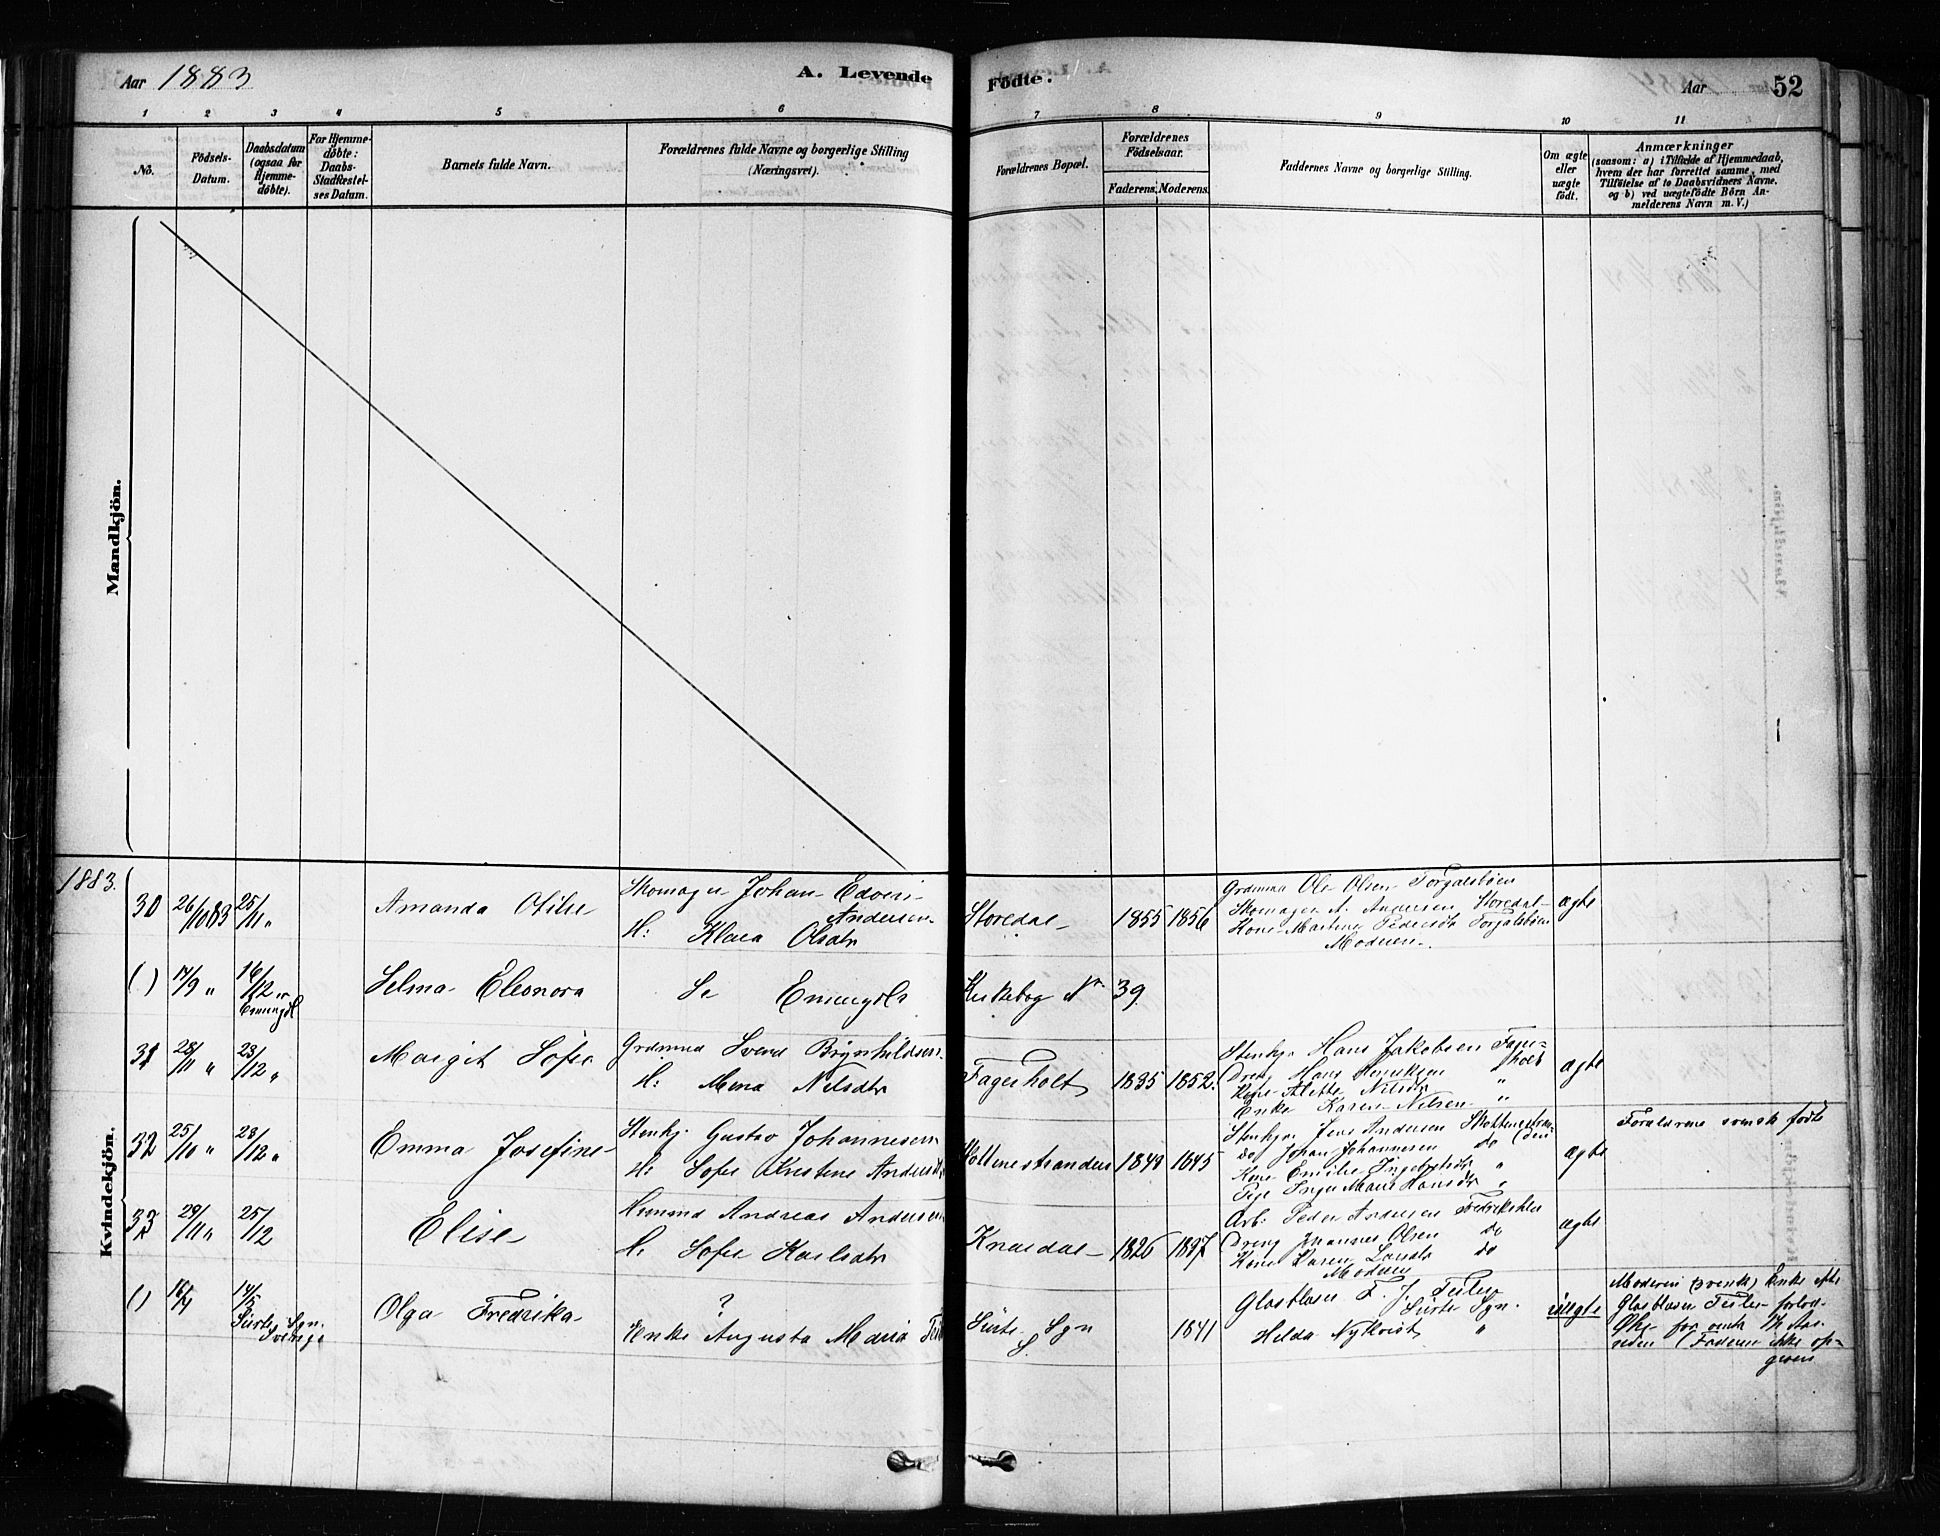 Aar 1883
A. Levende
Födte.
Aar
52
1 2 3 4 5 6 7 8 9 10 11
No.
Födsels-
Datum.
Daabsdatum
(ogsaa for
Hjemme-
döbte).
For Hjemme-
döbte:
Daabs-
Stadfæstel-
ses Datum.
Barnets fulde Navn.
Forældrenes fulde Navne og borgerlige Stilling
(Næringsvei).
Forældrenes Bopæl.
Forældrenes
Födselsaar.
Faderens.
Moderens.
Faddernes Navne og borgerlige Stilling.
Om ægte
eller
uægte
födt.
Anmærkninger
(saasom: a) i Tilfælde af Hjemmedaab,
hvem der har forrettet samme, med
Tilföielse af to Daabsvidners Navne,
og b) ved uægtefödte Börn An-
melderens Navn m. V.)
Mandkjön.
Kvindekjön.
1883.
30 26/10 83 25/11 " Amanda Otilie
Skomager Johan Edvin
Andersen
H: Klara Olsdtr
Storedal 1855 1856
Grdmnd Ole Olsen Torgalsböen
Skomager A. Andersen Storedal
Kone Martine Pedersdtr Torgalsböen
Moderen.
ægte
( ) 14/9 " 16/12 Selma Eleonora
Se Enningdls Kirkebog No 39.
31 28/11 " 23/12 " Margit Sofie
Grdmnd Svend Brynhildsen
H: Mina Nilsdtr
Fagerholt 1835 1852.
Stenhgr Hans Jakobsen Fager-
holt
Dreng Hans Henriksen "
Kone Alette Nilsdtr "
Enke Karen Nilsen "
ægte
32 25/10 " 23/12 " Emma Josefine
Stenhj. Gustav Johannesen
H: Sofie Kristine Andersdtr
1849 1845
Stenhgr Jens Andersen
do Johan Johannesen do
Kone Emilie Ingebretsdtr "
Pige Inger Marie Hansdtr "
ægte
Forældrene svensk födte
33 29/11 " 25/12 Elise
Husmnd Andreas Andersen
H: Sofie Karlsdtr
Knardal 1826 1837
Arb: Peder Andersen Fredrikshld
Dreng Johannes Olsen do
Kone Karen Larsdtr do
Moderen
ægte
( ) 16/4 14/5 Olga Fredrika
Surte Sgn.
Sverige
?
Enke Augusta Maria
Surte Sgn
S
1841
Glasblaser F. J. Teiler
Surte Sgn.
Hilda Nykvist "
uægte
Moderen (svensk) Enke efter
Glasblaser Teiler
for omtr
(Faderen ikke op-
given